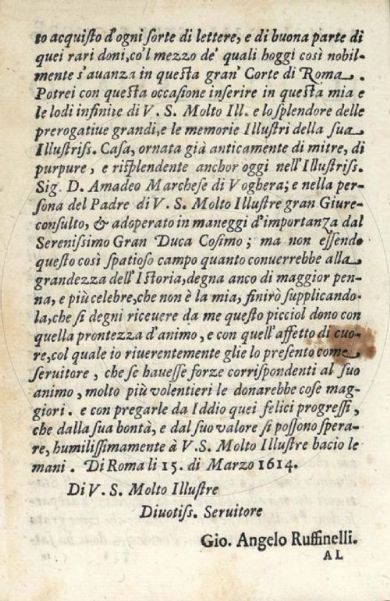 to acquiſto d'ogni ſorte di lettere, e di buona parte di
quei rari doni, co'l mezzo de' quali hoggi così nobil-
mente s'auanza in queſta gran' Corte di Roma.
Potrei con queſta occaſione inſerire in queſta mia e
le lodi infinite di V. S. Molto Ill. e lo ſplendore delle
prerogatiue grandi, e le memorie Illuſtri della ſua
Illuſtriſs. Caſa, ornata già anticamente di mitre, di
purpure, e riſplendente anchor oggi nell'Illuſtriſs.
Sig. D. Amadeo Marcheſe di Voghera; e nella per-
ſona del Padre di V. S. Molto Illuſtre gran Giure-
conſulto, & adoperato in maneggi d'importanza dal
Sereniſſimo Gran Duca Coſimo; ma non eſſendo
queſto così ſpatioſo campo quanto conuerrebbe alla
grandezza dell'Iſtoria, degna anco di maggior pen-
na, e più celebre, che non è la mia, finirò ſupplicando-
la, che ſi degni riceuere da me queſto picciol dono con
quella prontezza d'animo, e con quell'affetto di cuo-
re, col quale io riuerentemente glie lo preſento come
ſeruitore, che ſe haueſſe forze corriſpondenti al ſuo
animo, molto più volentieri le donarebbe coſe mag-
giori. e con pregarle da Iddio quei felici progreſſi,
che dalla ſua bontà, e dal ſuo valore ſi poſſono ſpera-
re, humiliſſimamente à V. S. Molto Illuſtre bacio le
mani. Di Roma li 15. di Marzo 1614.
Di V. S. Molto Illuſtre
Diuotiſs. Seruitore
Gio. Angelo Ruffinelli.
AL